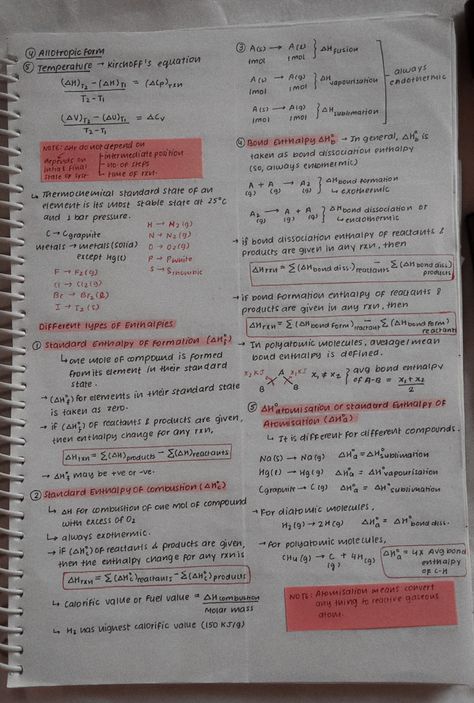 ④ Allotropic form
⑤ Temperature → Kirchoff's equation
(ΔH)T₂ - (ΔH)T₁ / T₂-T₁ = (ΔCp)rxn
(ΔU)T₂ - (ΔU)T₁ / T₂-T₁ = ΔCv
NOTE: ΔH do not depend on
depends on initial & final state of rxn
intermediate position
no. of steps
time of rxn.
↳ Thermochemical standard state of an
element is its most stable state at 25°C
and 1 bar pressure.
C → Cgraphite
H → H₂(g)
N → N₂(g)
metals → metals(solid)
except Hg(l)
O → O₂(g)
P → Pwhite
S → Srhombic
F → F₂(g)
Cl → Cl₂(g)
Br → Br₂(l)
I → I₂(s)
Different types of Enthalpies
① Standard Enthalpy of formation (ΔH°f)
↳ one mole of compound is formed
from its element in their standard
state.
→ (ΔH°f) for elements in their standard state
is taken as zero.
→ if (ΔH°f) of reactants & products are given,
then enthalpy change for any rxn,
ΔHrxn = Σ(ΔH)products - Σ(ΔH)reactants
→ ΔH°f may be +ve or -ve.
② Standard Enthalpy of combustion (ΔH°c)
↳ ΔH for combustion of one mol of compound
with excess of O₂
↳ always exothermic.
→ if (ΔH°c) of reactants & products are given,
then the enthalpy change for any rxn is
ΔHrxn = Σ(ΔH°c)reactants - Σ(ΔH°c)products
↳ calorific value or fuel value = ΔHcombustion / Molar mass
↳ H₂ has highest calorific value (150 KJ/g)
③ A(s) → A(l) } ΔHfusion
1mol 1mol
A(l) → A(g) } ΔHvapourisation
1mol 1mol
A(s) → A(g) } ΔHsublimation
1mol 1mol
always
endothermic
④ Bond Enthalpy ΔH°b → In general, ΔH°b is
taken as bond dissociation enthalpy
(so, always endothermic)
A + A → A₂ } ΔHbond formation
(g) (g) (g) ↳ exothermic
A₂ → A + A } ΔHbond dissociation
(g) (g) (g) ↳ endothermic
→ if bond dissociation enthalpy of reactants &
products are given in any rxn, then
ΔHrxn = Σ(ΔHbond diss.)reactants - Σ(ΔHbond diss)products
→ if bond formation enthalpy of reactants &
products are given in any rxn, then
ΔHrxn = Σ(ΔHbond form)reactant Σ(ΔHbond form)reactants
→ In polyatomic molecules, average/mean
bond enthalpy is defined.
x₂ KJ A x₁ KJ x₁ ≠ x₂ } avg bond enthalpy
B B of A-B = x₁+x₂ / 2
⑤ ΔH°atomisation or Standard Enthalpy of
Atomisation (ΔH°a)
↳ It is different for different compounds.
Na(s) → Na(g) ΔH°a = ΔH°sublimation
Hg(l) → Hg(g) ΔH°a = ΔH°vapourisation
Cgraphite → C(g) ΔH°a = ΔH°sublimation
→ For diatomic molecules,
H₂(g) → 2H(g) ΔH°a = ΔH°bond diss.
→ for polyatomic molecules,
CH₄(g) → C + 4H(g)
(g)
ΔH°a = 4 x Avg bond
enthalpy
of C-H
NOTE: Atomisation means convert
any thing to reactive gaseous
atom.